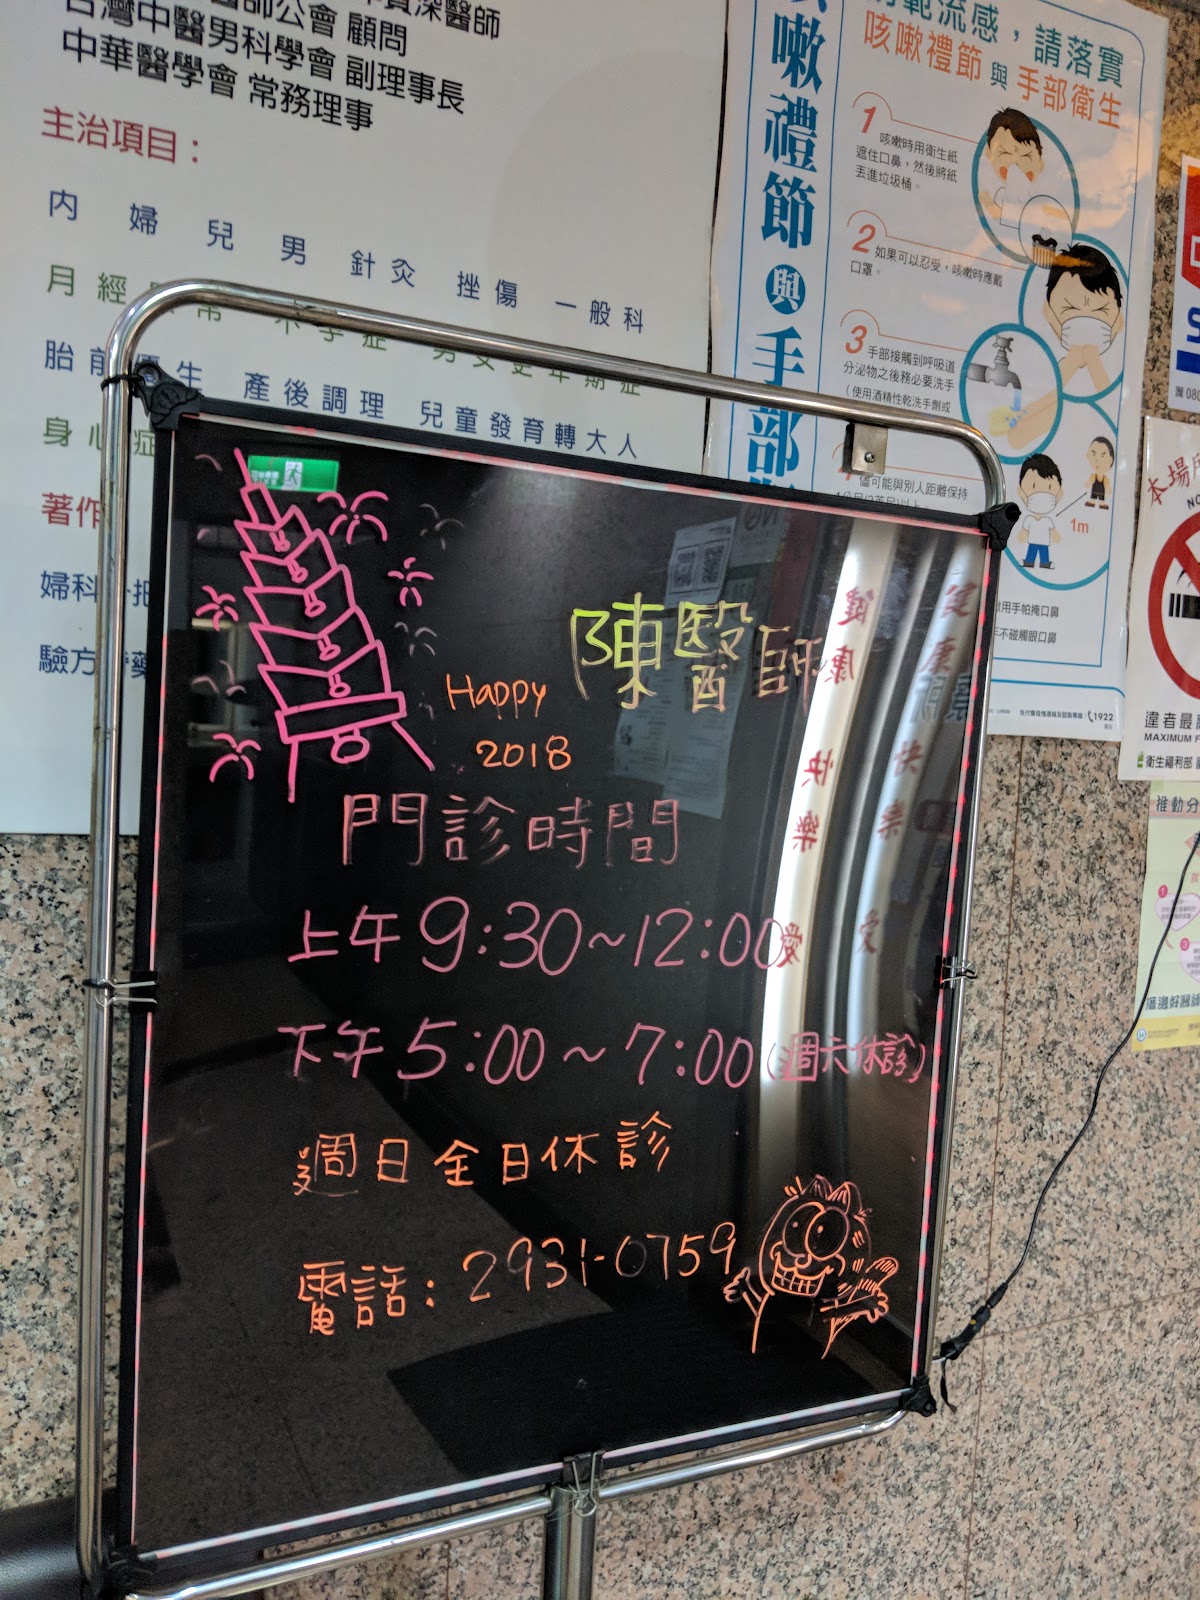 醫師公會 顧問
台灣中醫男科學會 副理事長
中華醫學會 常務理事
主治項目：
內 婦 兒 男 針灸 挫傷 一般科
月經
胎前優生 產後調理 兒童發育轉大人
身心症
著作
婦科
驗方
嗽禮節與手部
流感，請落實
咳嗽禮節 與 手部衛生
1 咳嗽時用衛生紙
遮住口鼻，然後將紙
丟進垃圾桶。
2 如果可以忍受，咳嗽時應戴
口罩。
3 手部接觸到呼吸道
分泌物之後務必要洗手
（使用酒精性乾洗手劑或
儘可能與別人距離保持
1m
用手帕掩口鼻
不碰觸眼口鼻
1922
陳醫師
Happy
2018
門診時間
上午 9:30~12:00
下午 5:00~7:00(週六休診)
週日全日休診
電話: 2931-0759
健康
快樂
愛
本場
NO
違者最
MAXIMUM F
衛生福利部
推動分